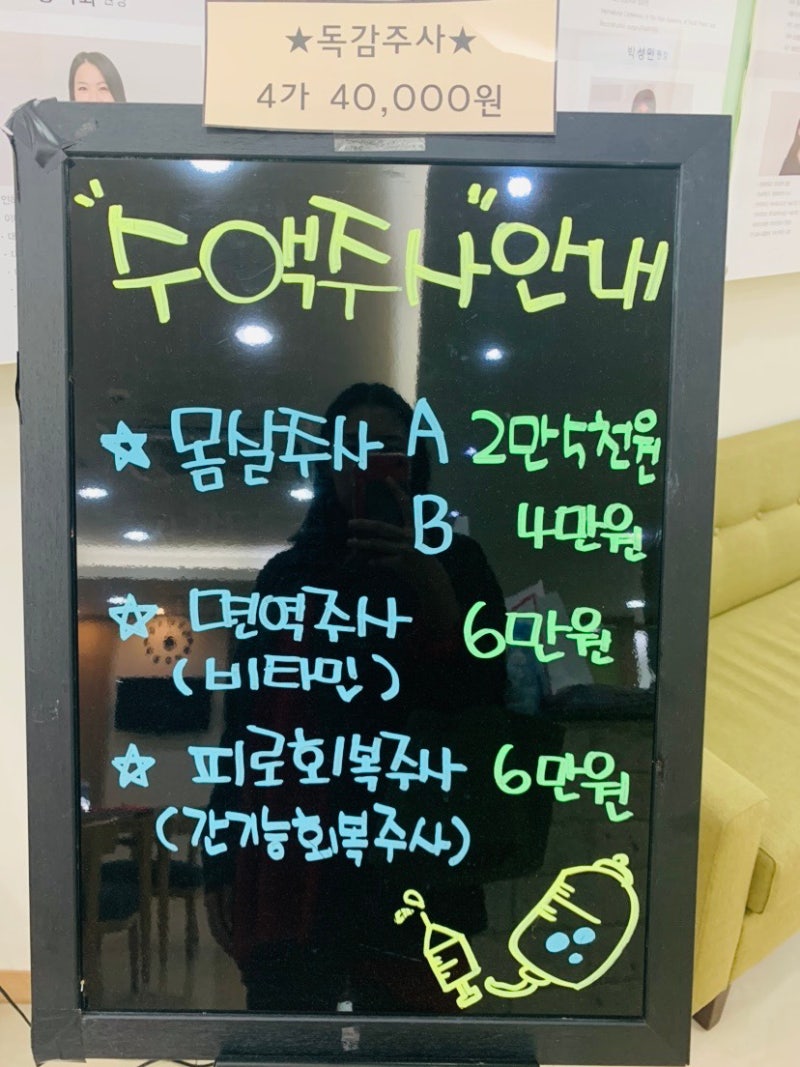 ★독감주사★
4가 40,000원
"수액주사" 안내
☆ 몸살주사 A 2만5천원
B 4만원
☆ 면역주사 6만원
(비타민)
☆ 피로회복주사 6만원
(간기능회복주사)